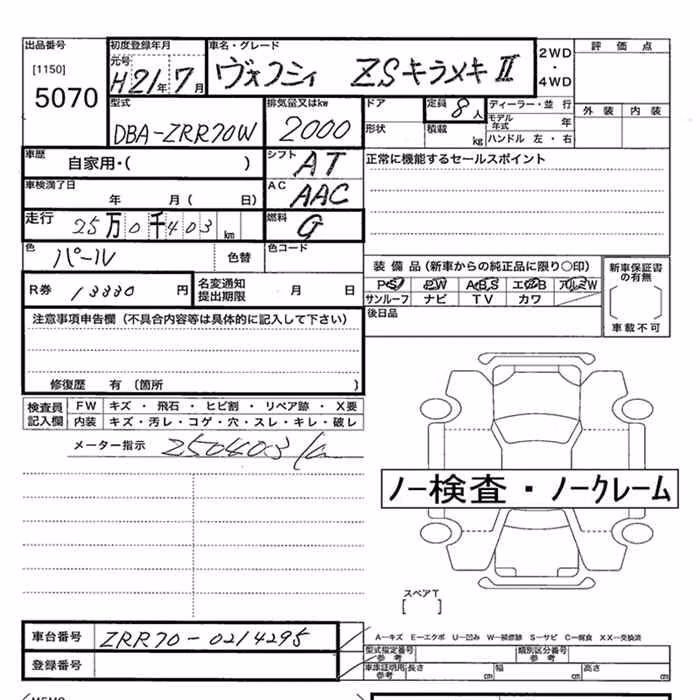 出品番号 初度登録年月 車名・グレード 評価点
[1150] 元号 2WD ・ 4WD
5070 H21年7月 ヴォクシィ ZSキラメキⅡ
外装 内装
型式 排気量又はkw ドア 定員 8人 ディーラー・並行
DBA-ZRR70W 2000 形状 積載 kg モデル年式 年
ハンドル 左・右
車歴 自家用・( ) シフト AT 正常に機能するセールスポイント
車検満了日 年 月( 日) AC AAC
走行 25万0千403km 燃料 G
色 パール 色替 色コード
装備品(新車からの純正品に限り○印) 新車保証書の有無
R券 13330円 名変通知提出期限 月 日
PS PW ABS エアB アルミW
サンルーフ ナビ TV カワ
後日品 車載不可
注意事項申告欄(不具合内容等は具体的に記入して下さい)
修復歴 有(箇所 )
検査員記入欄 FW キズ・飛石・ヒビ割・リペア跡・X要
内装 キズ・汚レ・コゲ・穴・スレ・キレ・破レ
メーター指示 250403km
ノー検査・ノークレーム
スペアT
[ ]
車台番号 ZRR70-0214295
A-キズ E-エクボ U-凹み W-補修跡 S-サビ C-腐食 XX-交換済
登録番号 型式指定番号参考 類別区分番号参考
車庫証明用参考 長さ cm 幅 cm 高さ cm
MEMO